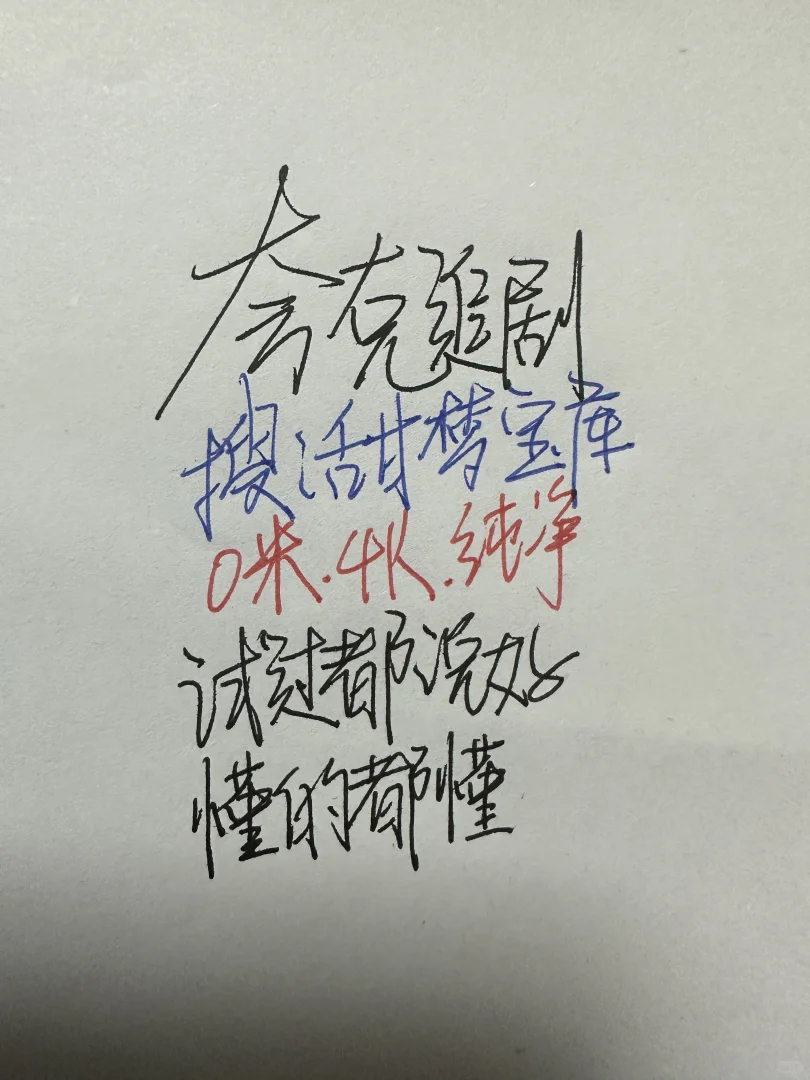 夸克追剧
搜活甜梦宝库
0米.4K.纯净
试过都说好
懂的都懂